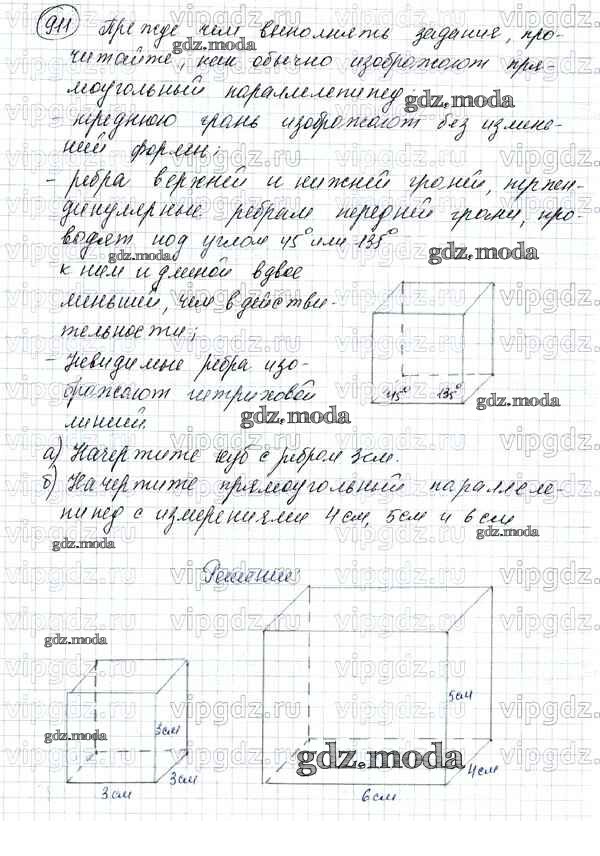 911 Прежде чем выполнять задание, про-
читайте, как обычно изображают пря-
моугольный параллелепипед:
- переднюю грань изображают без измене-
ний формы;
- ребра верхней и нижней граней, перпен-
дикулярные ребрам передней грани, про-
водят под углом 45° или 135°
к ним и длиной вдвое
меньшей, чем в действи-
тельности;
- Невидимые ребра изо-
бражают штриховой
линией.
45° 135°
а) Начертите куб с ребром 3 см.
б) Начертите прямоугольный параллеле-
пипед с измерениями 4 см, 5 см и 6 см
Решение
3 см
3 см
3 см
5 см
4 см
6 см
gdz.moda
vipgdz.ru